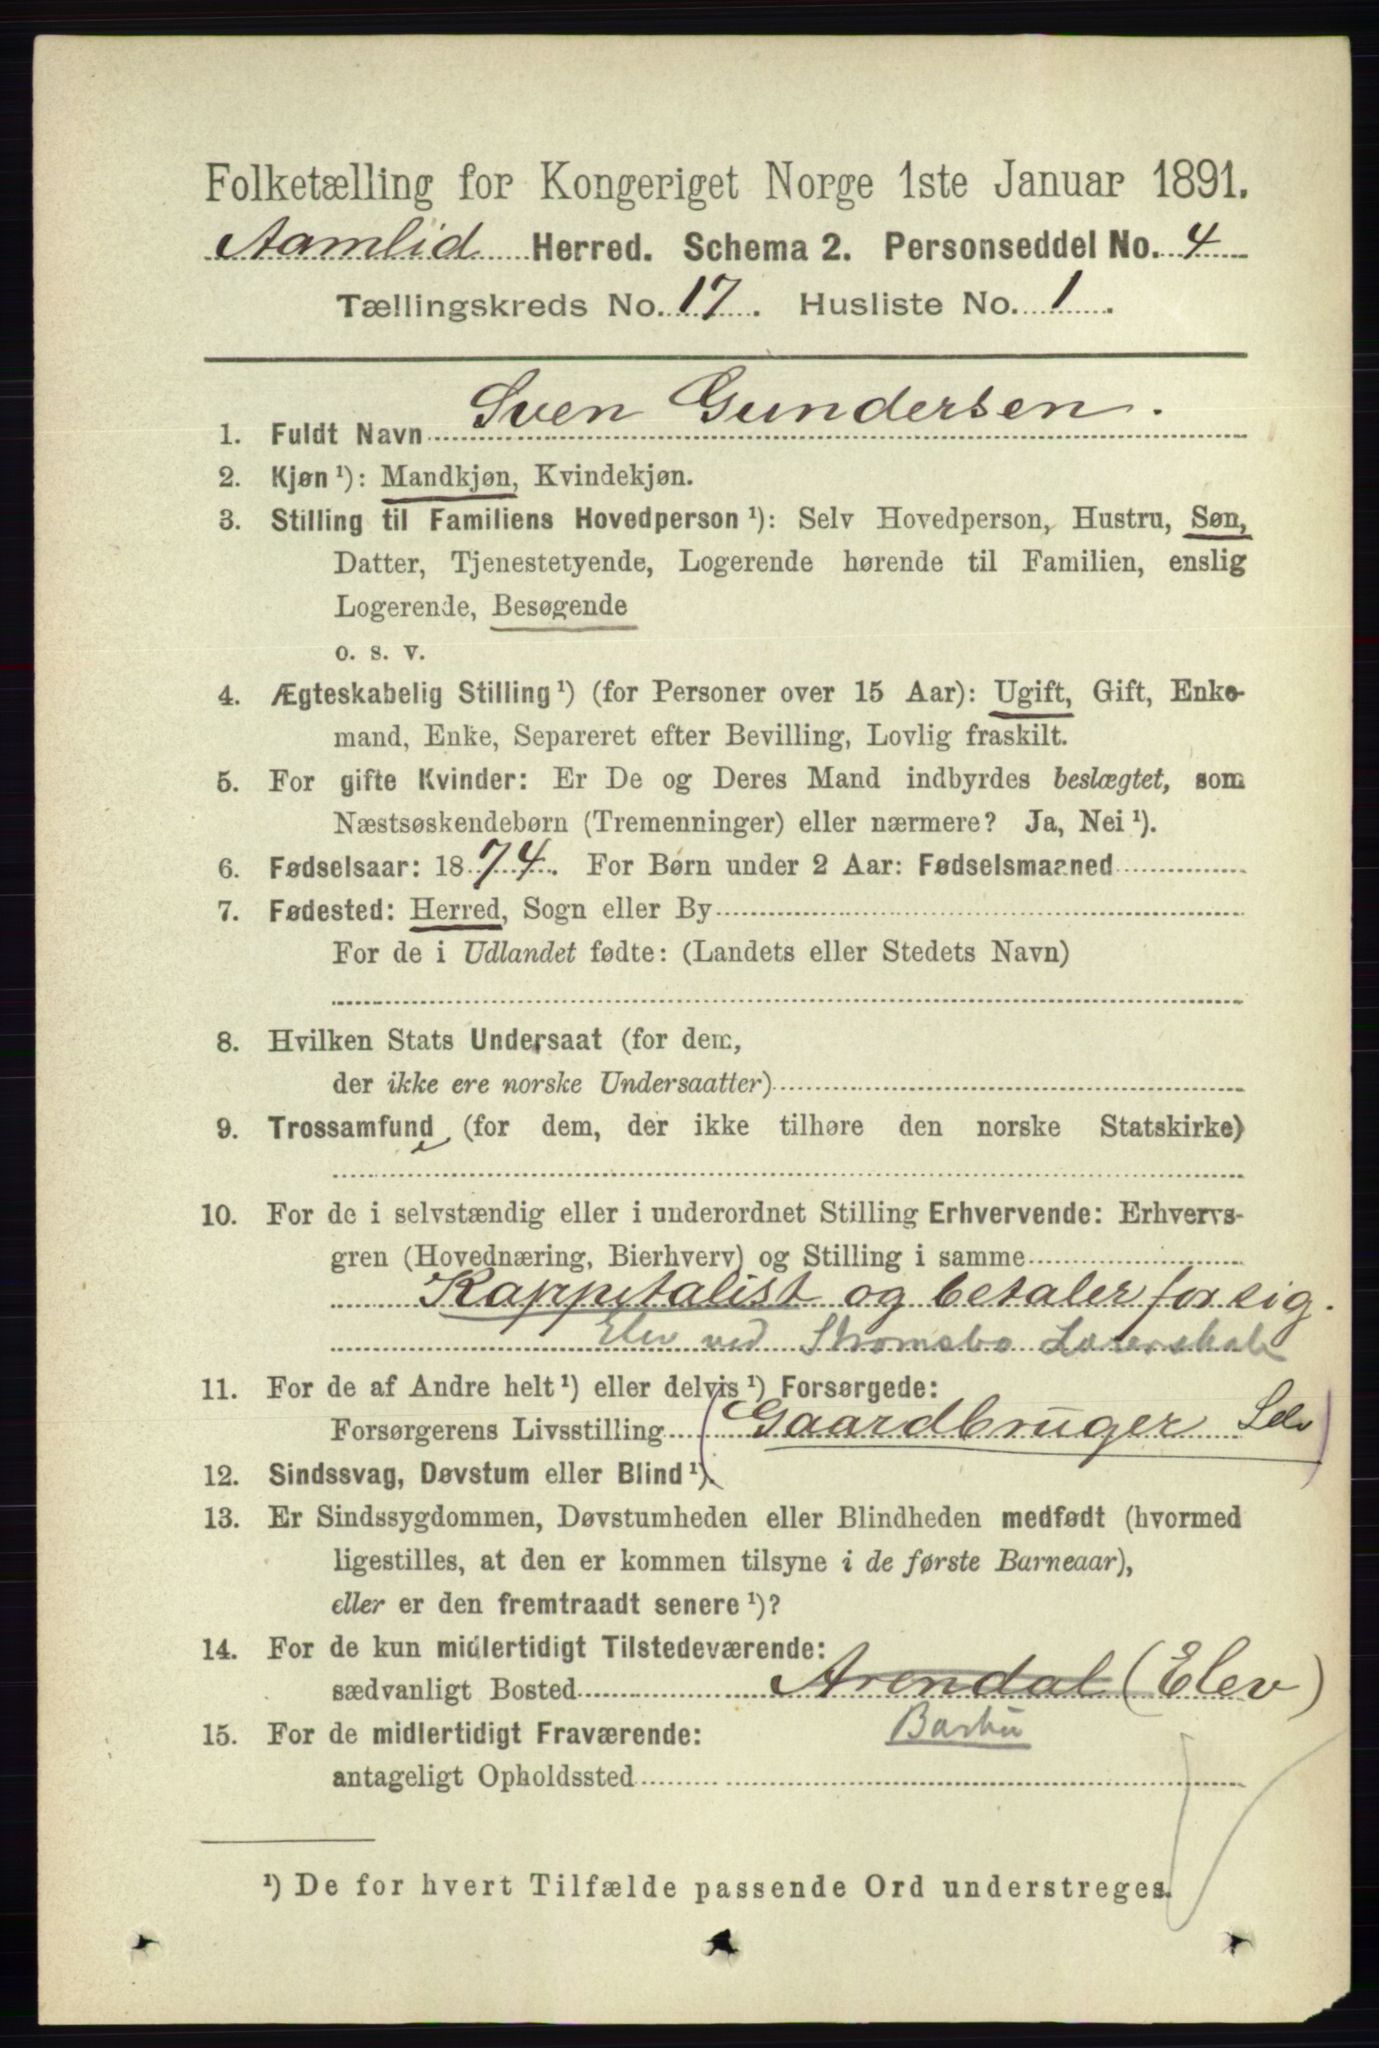 Folketælling for Kongeriget Norge 1ste Januar 1891.
Aamlid Herred. Schema 2. Personseddel No. 4
Tællingskreds No. 17. Husliste No. 1.
1. Fuldt Navn Sven Gundersen.
2. Kjøn ¹): Mandkjøn, Kvindekjøn.
3. Stilling til Familiens Hovedperson ¹): Selv Hovedperson, Hustru, Søn,
Datter, Tjenestetyende, Logerende hørende til Familien, enslig
Logerende, Besøgende
o. s. v.
4. Ægteskabelig Stilling ¹) (for Personer over 15 Aar): Ugift, Gift, Enke-
mand, Enke, Separeret efter Bevilling, Lovlig fraskilt.
5. For gifte Kvinder: Er De og Deres Mand indbyrdes beslægtet, som
Næstsøskendebørn (Tremenninger) eller nærmere? Ja, Nei ¹).
6. Fødselsaar: 1874. For Børn under 2 Aar: Fødselsmaaned
7. Fødested: Herred, Sogn eller By
For de i Udlandet fødte: (Landets eller Stedets Navn)
8. Hvilken Stats Undersaat (for dem,
der ikke ere norske Undersaatter)
9. Trossamfund (for dem, der ikke tilhøre den norske Statskirke)
10. For de i selvstændig eller i underordnet Stilling Erhvervende: Erhvervs-
gren (Hovednæring, Bierhverv) og Stilling i samme
Kappitalist og betaler for sig.
Elev ved Stromsbo Lærerskole
11. For de af Andre helt ¹) eller delvis ¹) Forsørgede:
Forsørgerens Livsstilling (Gaardbruger Selv)
12. Sindssvag, Døvstum eller Blind ¹).
13. Er Sindssygdommen, Døvstumheden eller Blindheden medfødt (hvormed
ligestilles, at den er kommen tilsyne i de første Barneaar),
eller er den fremtraadt senere ¹)?
14. For de kun midlertidigt Tilstedeværende:
sædvanligt Bosted Arendal (Elev)
Barbu
15. For de midlertidigt Fraværende:
antageligt Opholdssted
¹) De for hvert Tilfælde passende Ord understreges.